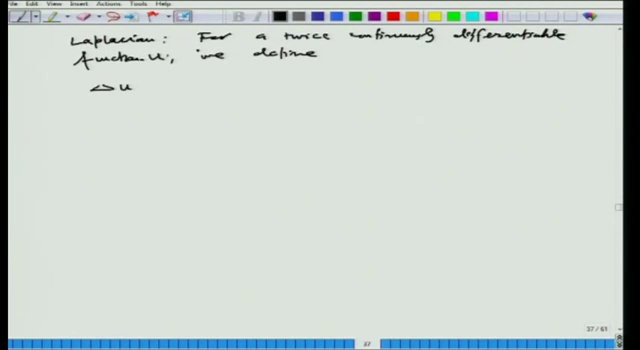 File Edit View Insert Actions Tools Help
Laplacian : For a twice continuously differentiable
function u, we define
Δu
37 / 61
37